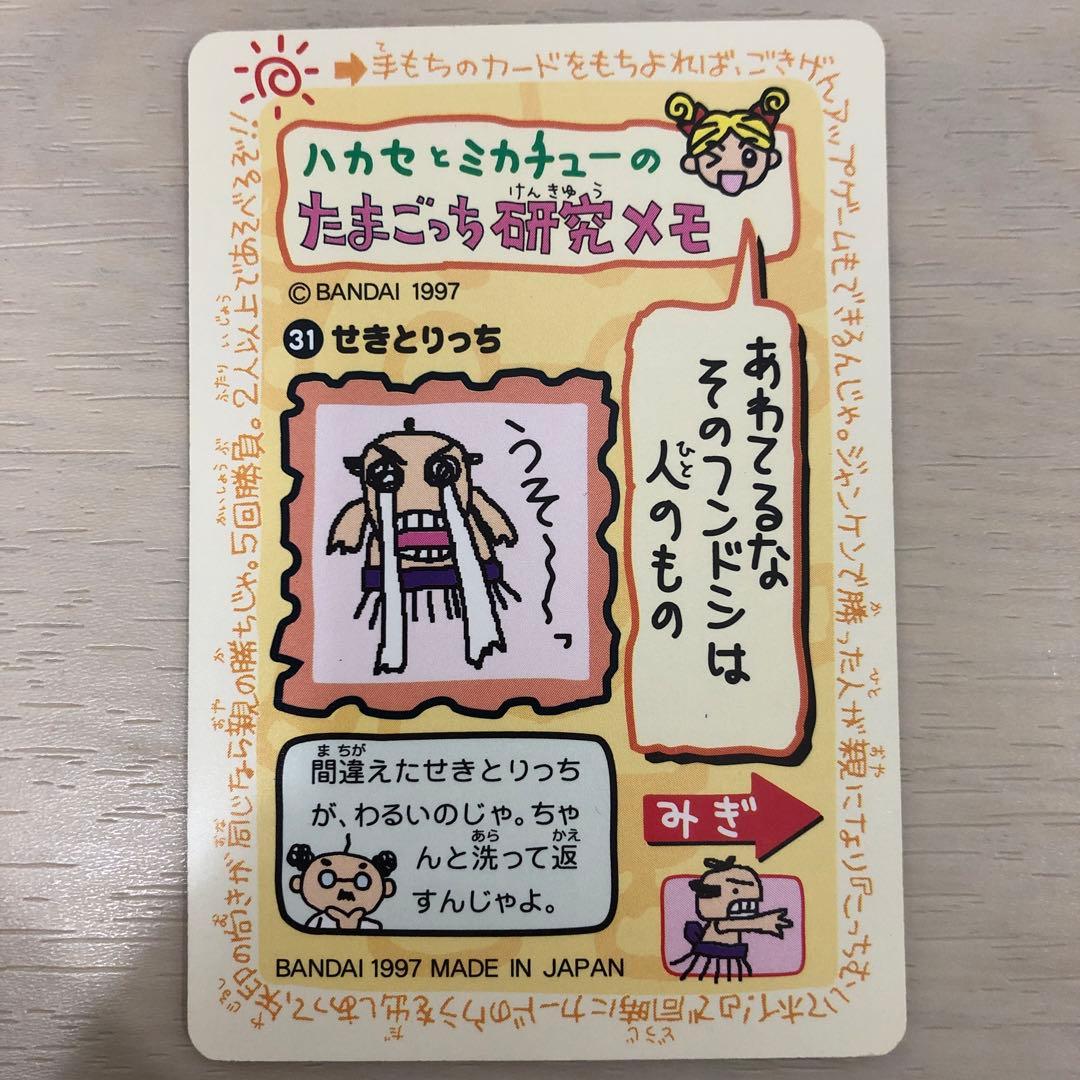 手もちのカードをもちよれば、ごきげんアップゲームもできるんじゃ。ジャンケンで勝った人が親になり『こっちむいてホイ!』で同時にカードのウラを出しあって、矢印の向きが同じなら親の勝ちじゃ。5回勝負。2人以上であそべるぞ!!
ハカセとミカチューの
たまごっち研究メモ
けんきゅう
© BANDAI 1997
31 せきとりっち
うそ〜〜っ
あわてるな
そのフンドシは
人のもの
ひと
間違えたせきとりっち
まちが
が、わるいのじゃ。ちゃ
んと洗って返
あら かえ
すんじゃよ。
みぎ
BANDAI 1997 MADE IN JAPAN